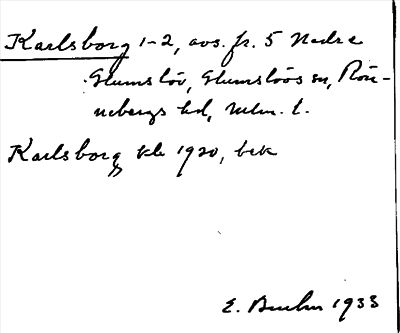 Karlsborg 1-2, avs. fr. 5 Nedre
Glumslöv, Glumslövs sn, Rön-
nebergs hd, Mlm. l.
Karlsborg kb 1920, bek
E. Bruhn 1933